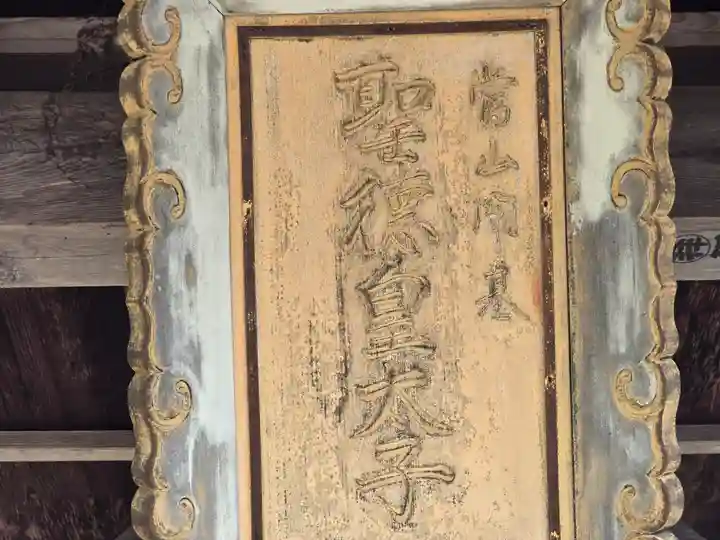 當山開基
聖徳皇太子